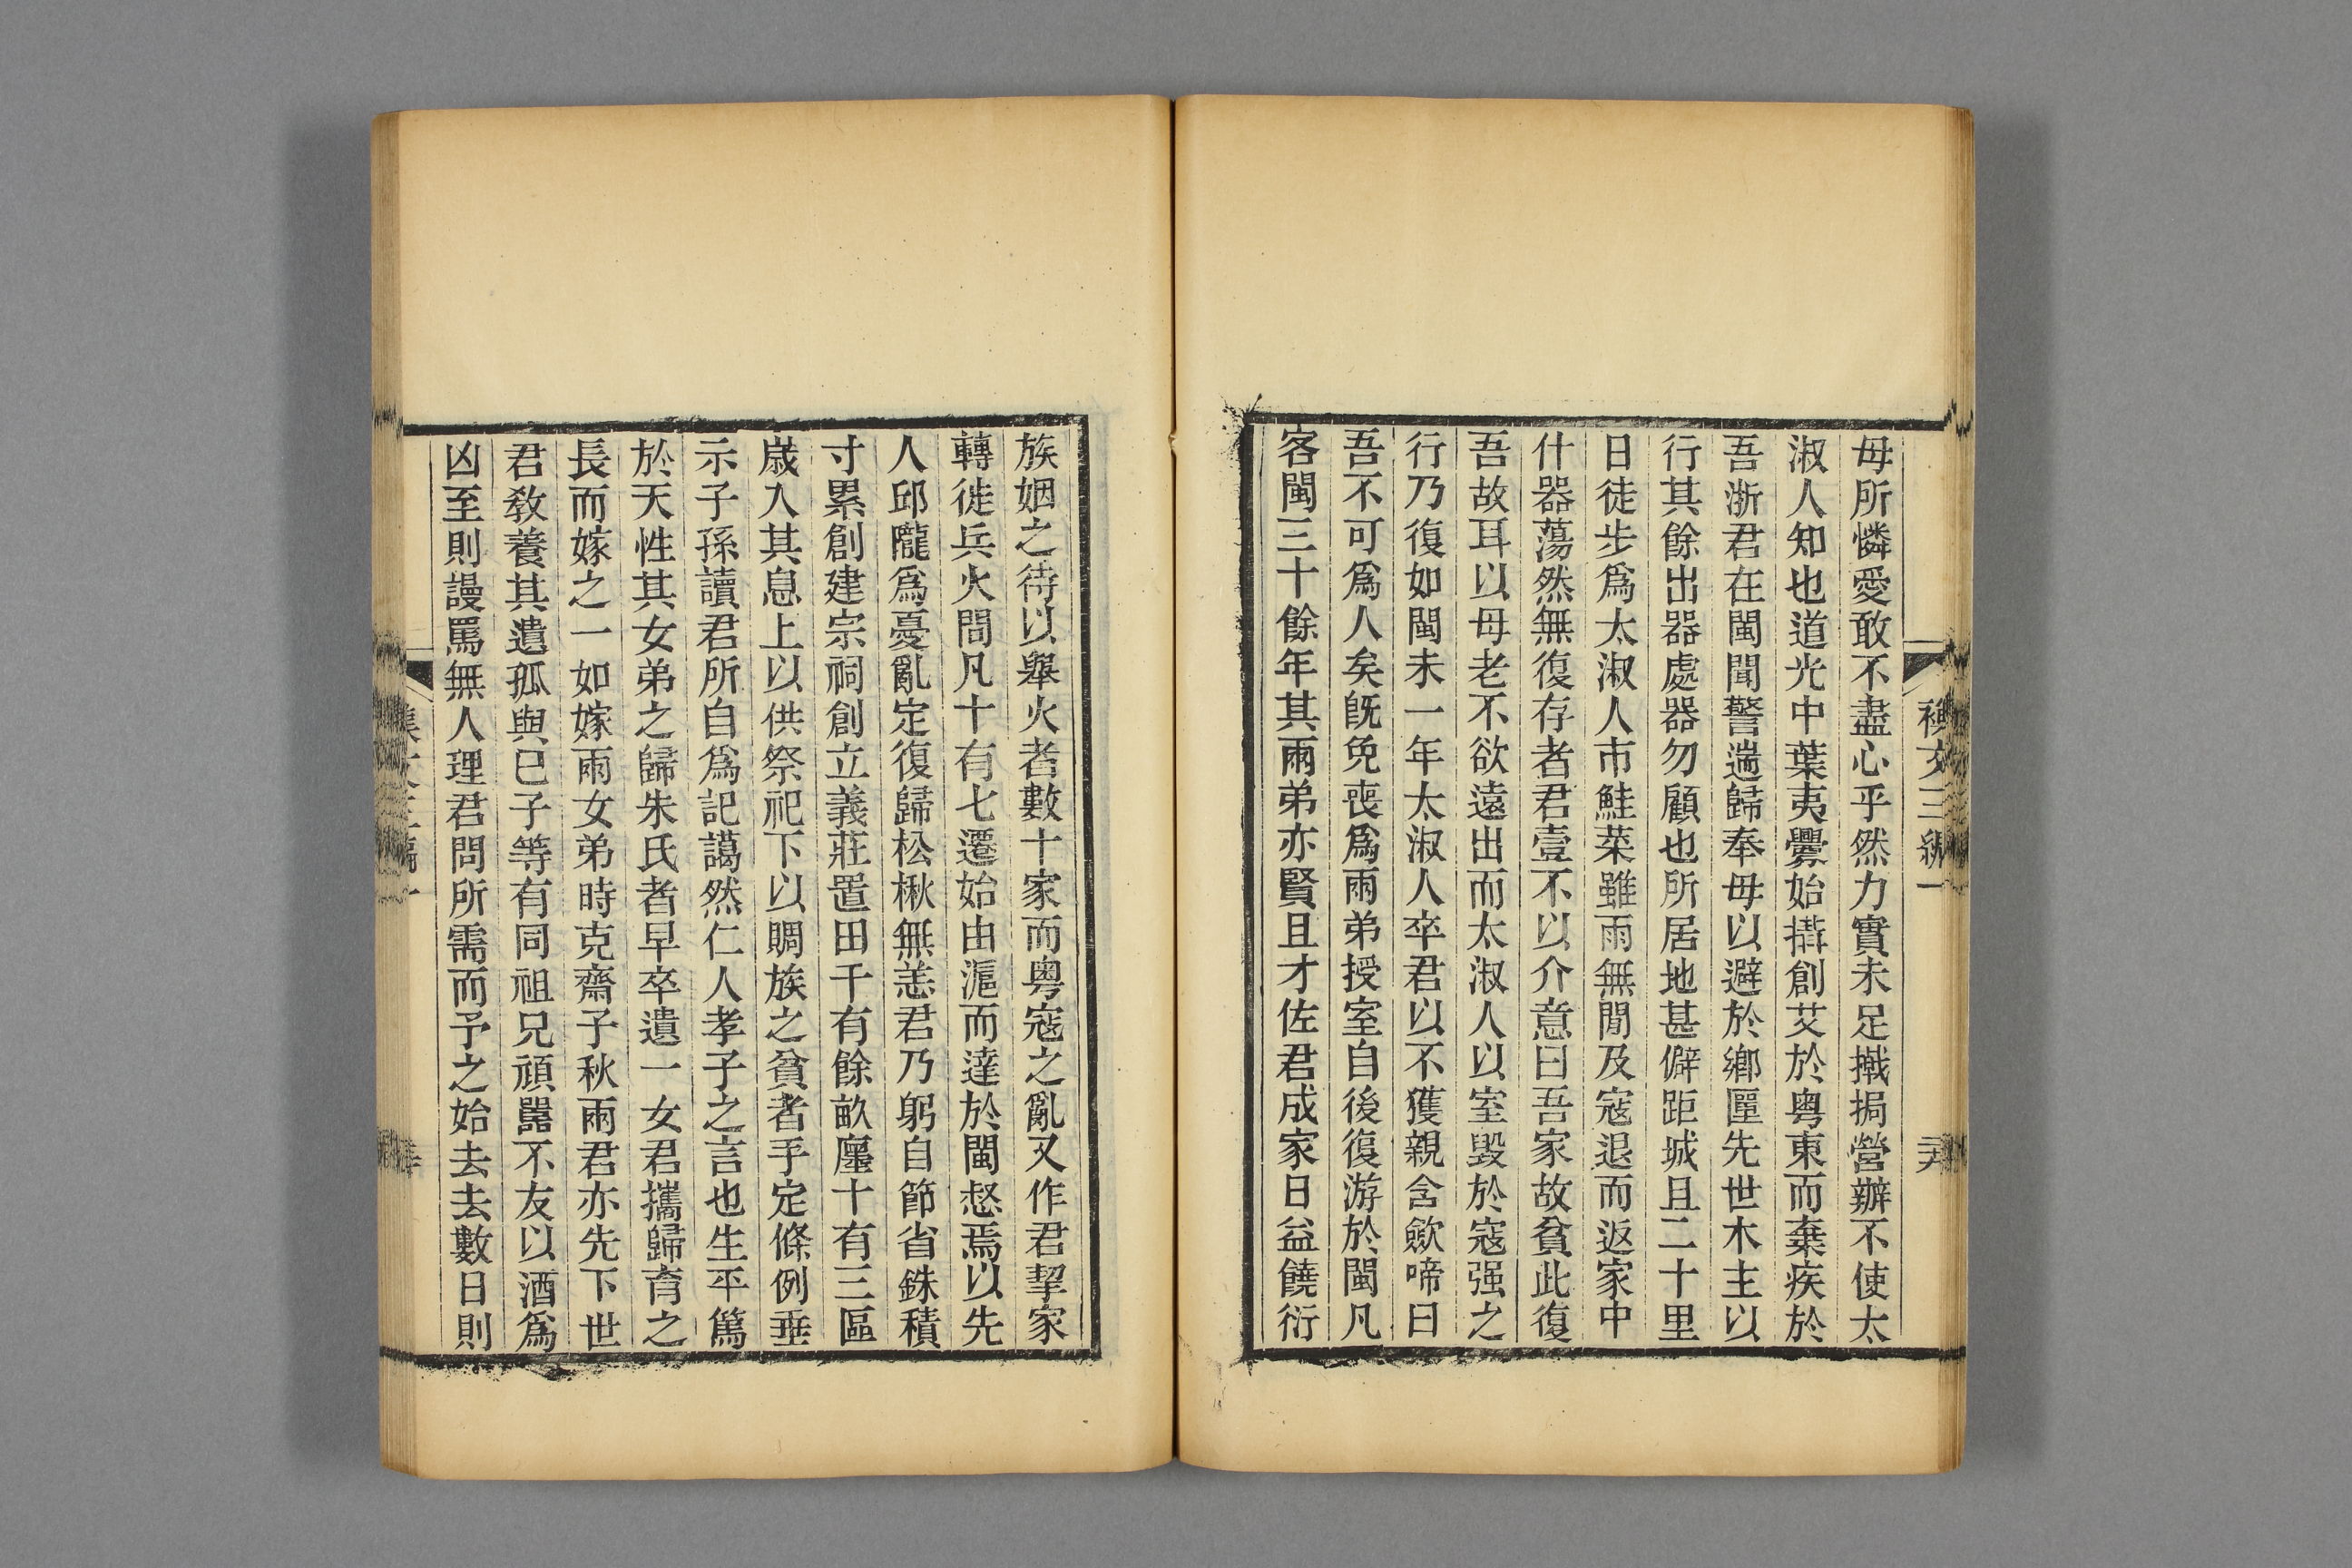 母所憐愛敢不盡心乎然力實未足摵挶營辦不使太
淑人知也道光中葉夷釁始搆創艾於粵東而棄疾於
吾浙君在閩聞警遄歸奉母以避於鄉匰先世木主以
行其餘出器處器勿顧也所居地甚僻距城且二十里
日徒步爲太淑人市鮭菜雖雨無閒及寇退而返家中
什器蕩然無復存者君壹不以介意曰吾家故貧此復
吾故耳以母老不欲遠出而太淑人以室毀於寇强之
行乃復如閩未一年太淑人卒君以不獲親含歛啼曰
吾不可爲人矣旣免喪爲兩弟授室自後復游於閩凡
客閩三十餘年其兩弟亦賢且才佐君成家日益饒衍
族姻之待以舉火者數十家而粵寇之亂又作君挈家
轉徙兵火間凡十有七遷始由滬而達於閩惄焉以先
人邱隴爲憂亂定復歸松楸無恙君乃躬自節省銖積
寸累創建宗祠創立義莊置田千有餘畝廛十有三區
歲入其息上以供祭祀下以賙族之貧者手定條例垂
示子孫讀君所自爲記藹然仁人孝子之言也生平篤
於天性其女弟之歸朱氏者早卒遺一女君攜歸育之
長而嫁之一如嫁兩女弟時克齋子秋雨君亦先下世
君敎養其遺孤與已子等有同祖兄頑嚚不友以酒爲
凶至則謾罵無人理君問所需而予之始去去數日則